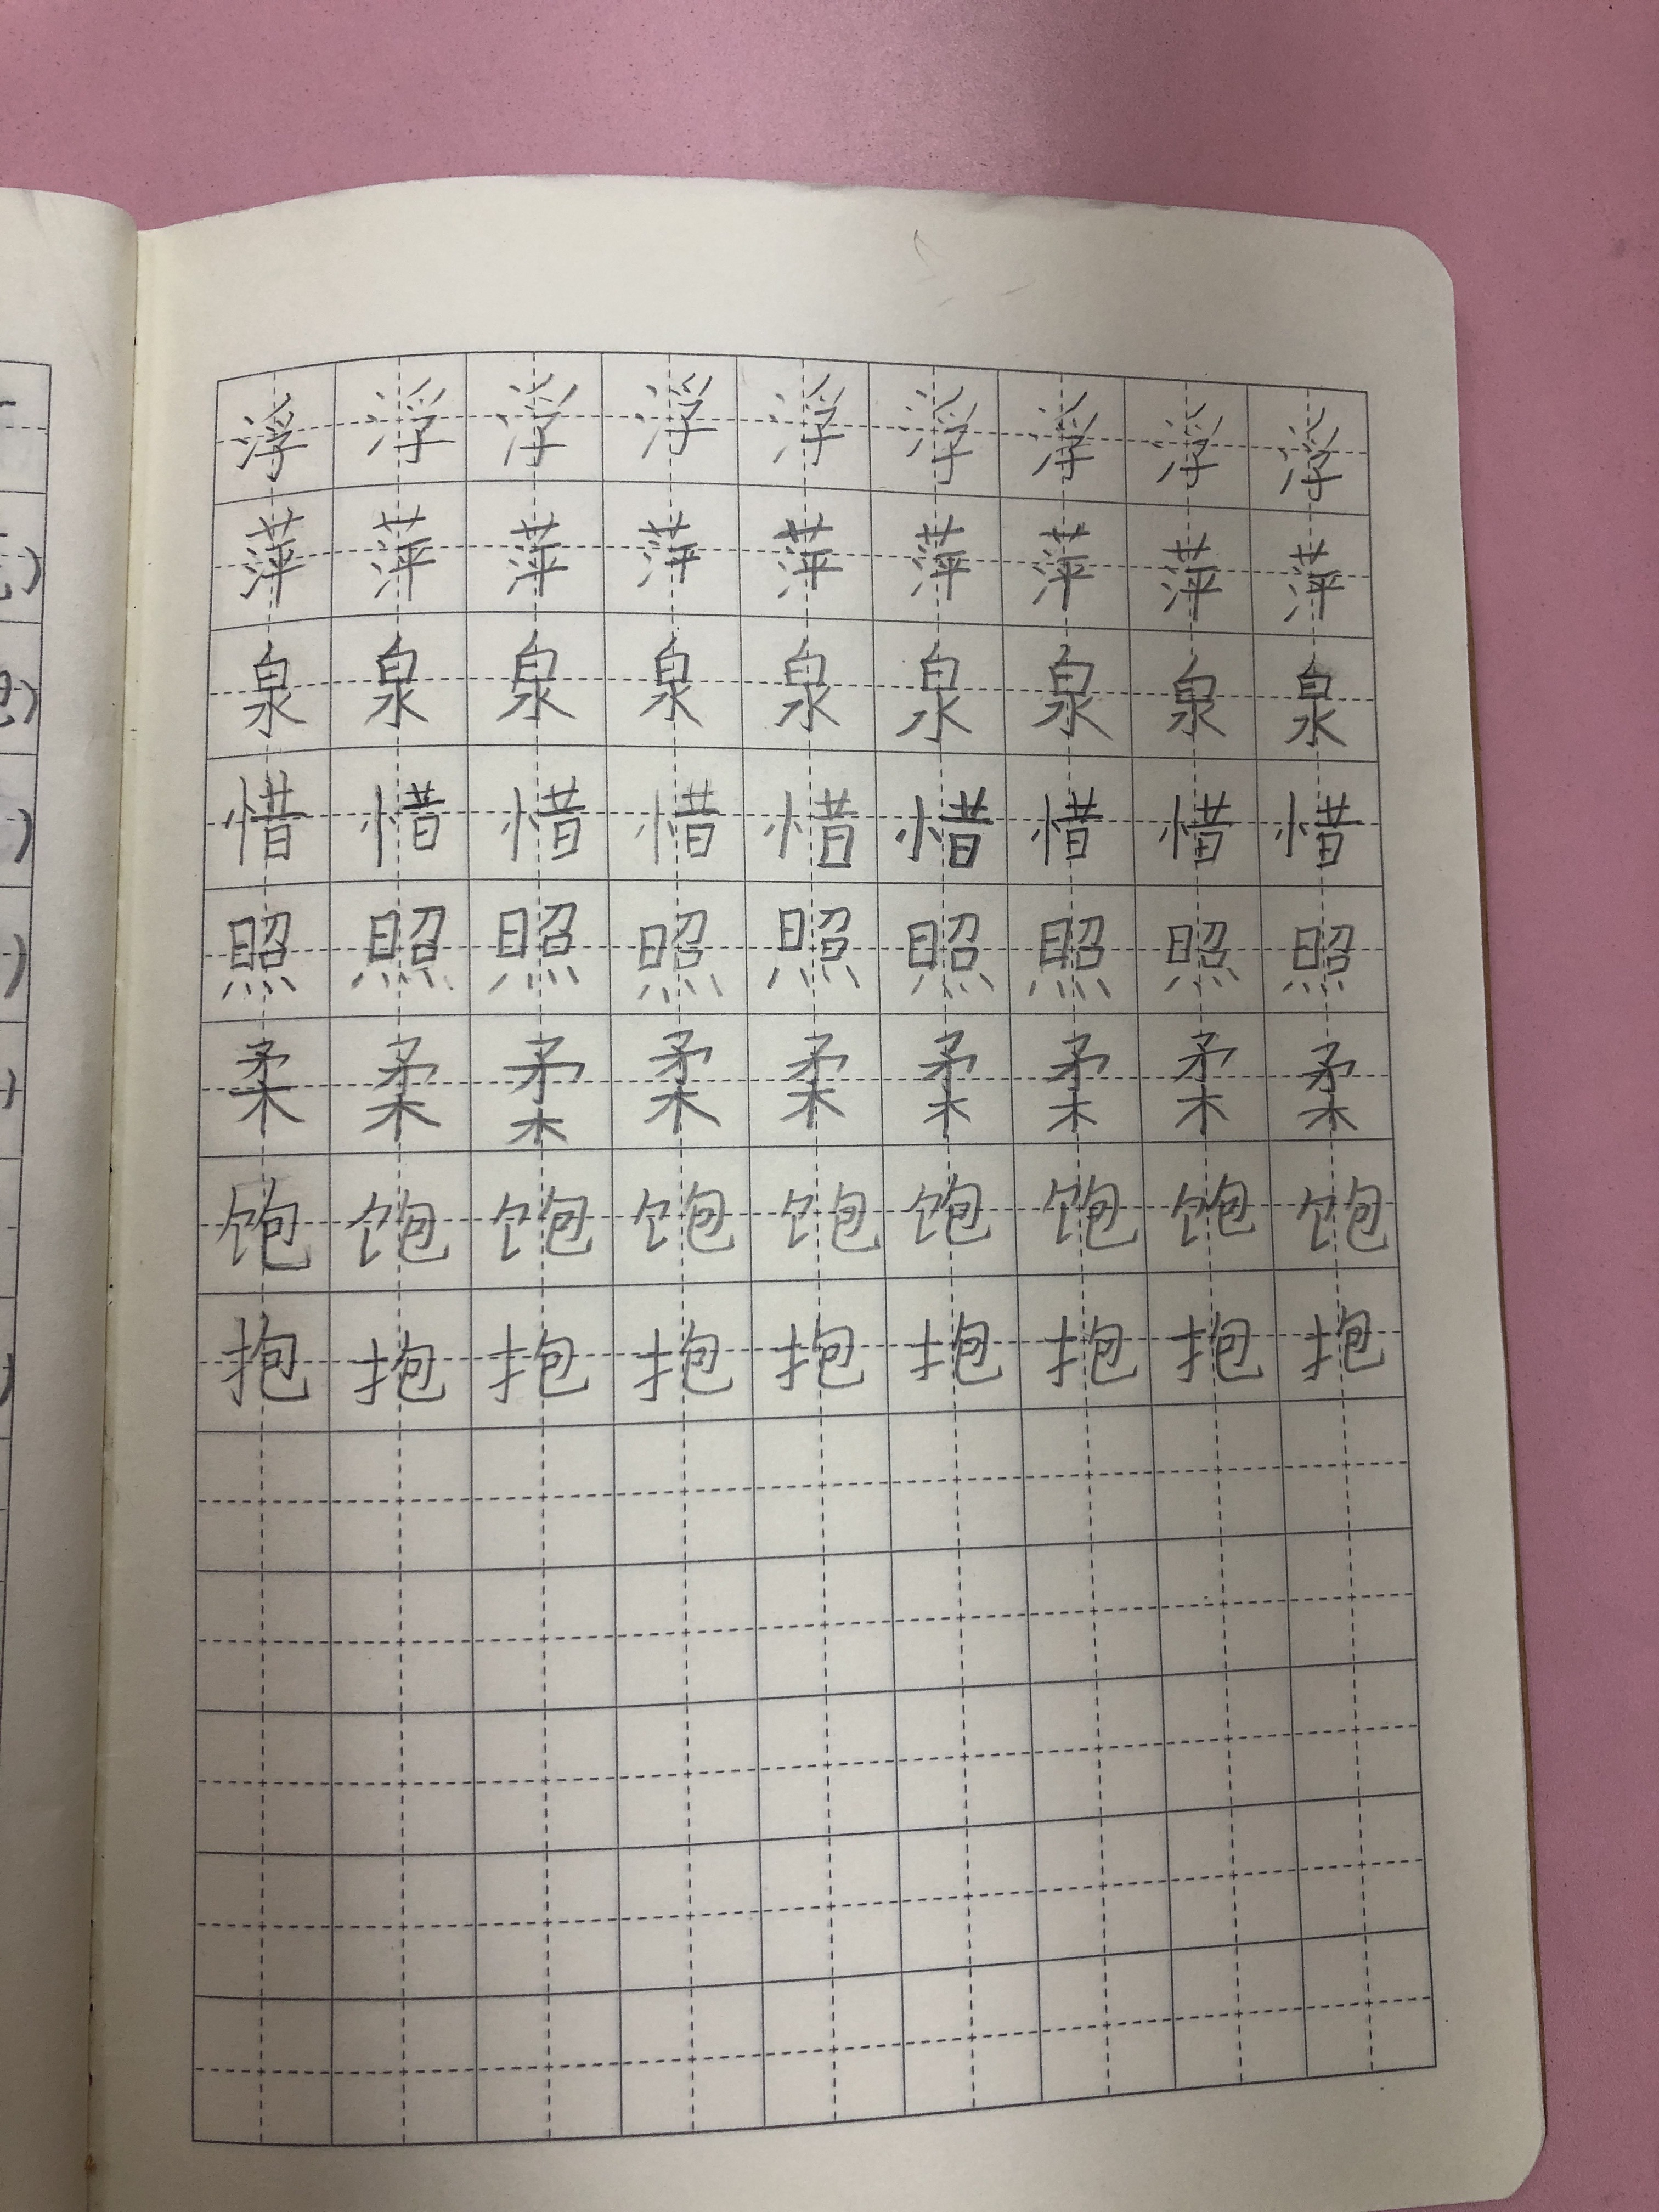 浮浮浮浮浮浮浮浮浮
萍萍萍萍萍萍萍萍萍
泉泉泉泉泉泉泉泉泉
惜惜惜惜惜惜惜惜惜
照照照照照照照照照
柔柔柔柔柔柔柔柔柔
饱饱饱饱饱饱饱饱饱
抱抱抱抱抱抱抱抱抱